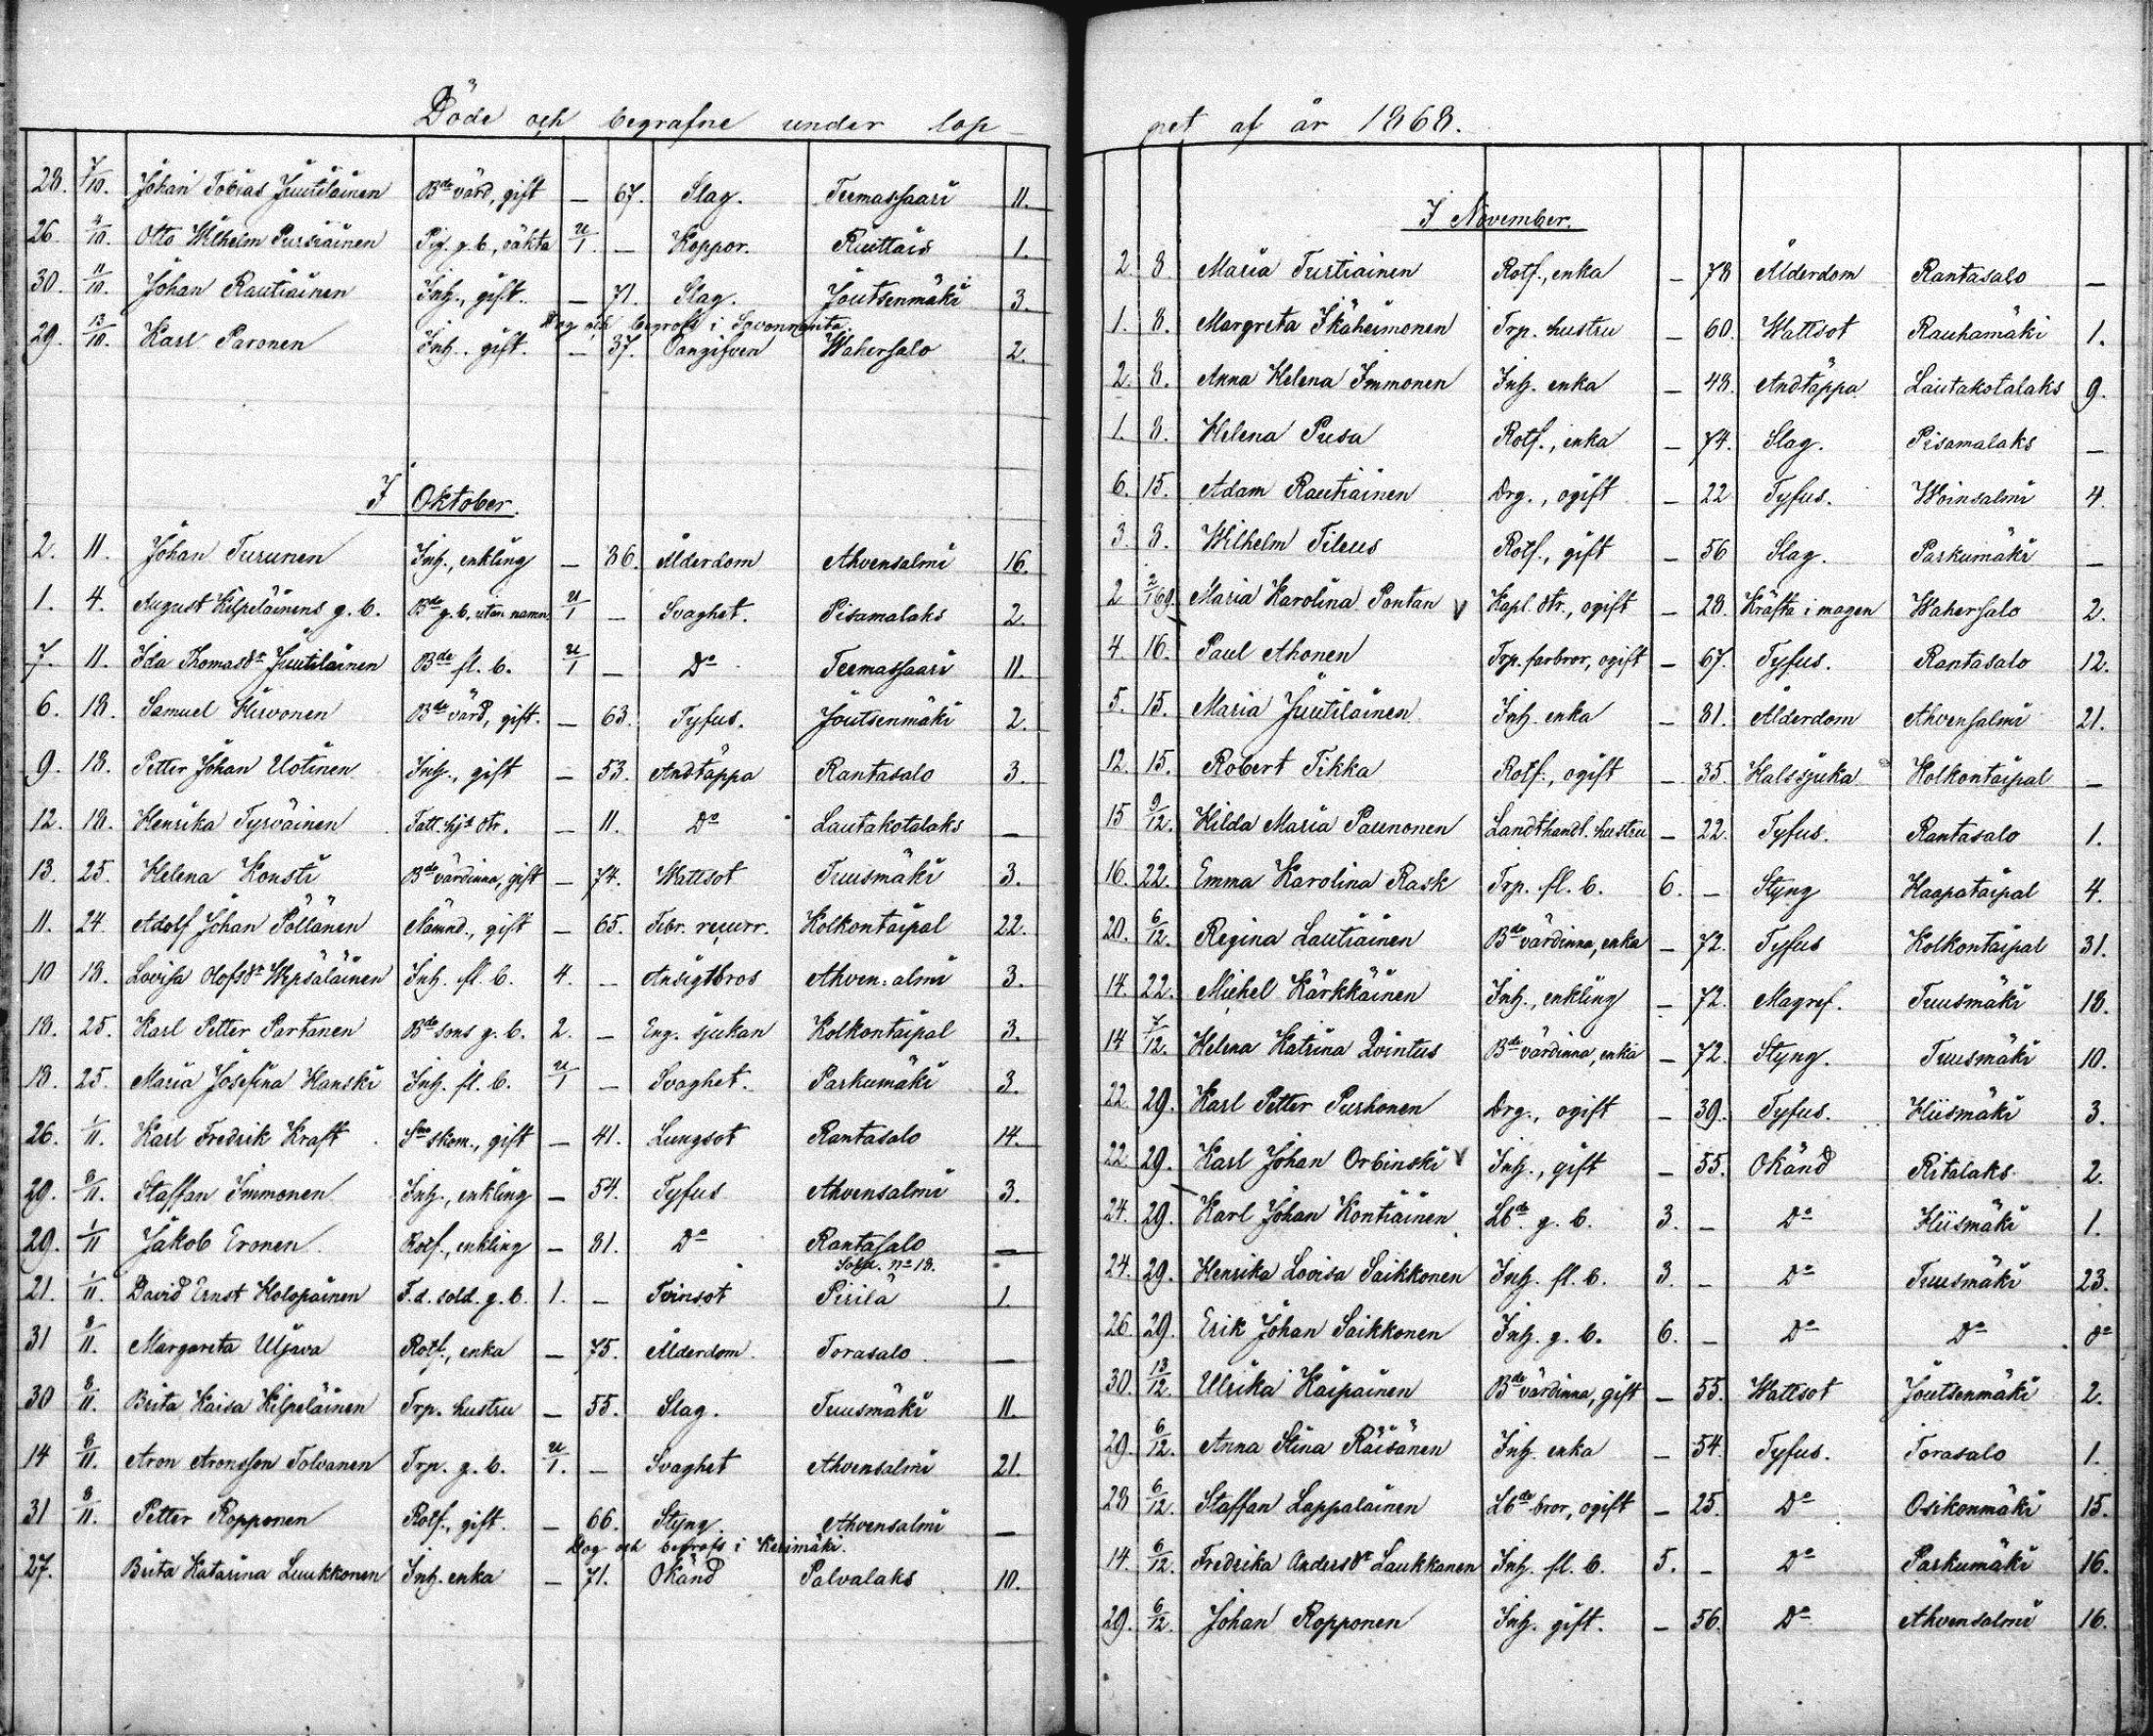 Döde och begrafne under lop-
28. 7/10. Johan Tobias Juutilainen Bde värd, gift — 67. Slag. Teemassaari 11.
26. 4/10. Otto Wilhelm Pursiainen Pig. g. b., oäkta u/1. — Koppor. Ruuttais 1.
30. 11/10. Johan Rautiainen Inh., gift. — 71. Slag. Joutsenmäki 3.
Dog och begrofs i Savonranta.
29. 13/10. Karl Paronen Inh. gift. — 37. Oangifven Wahersalo 2.
I Oktober.
2. 11. Johan Turunen Inh., enkling — 86. Ålderdom Ahvensalmi 16.
1. 4. August Kilpeläinens g. b. Bde g. b. utan namn. u/1 — Svaghet. Pisamalaks 2.
7. 11. Ida Thomasdr Juutilainen Bde fl. b. u/1 — Do Teemassaari 11.
6. 18. Samuel Hirvonen Bde värd, gift. — 63. Tyfus. Joutsenmäki 2.
9. 18. Petter Johan Uotinen Inh., gift — 53. Andtäppa Rantasalo 3.
12. 18. Henrika Tyrväinen Fatt. hj. dtr. — 11. Do Lautakotalaks —
13. 25. Helena Konsti Bde värdinna, gift — 74. Wattsot Tuusmäki 3.
11. 24. Adolf Johan Pöllänen Nämnd., gift — 65. Febr. recurr. Kolkontaipal 22.
10 18. Lovisa Olofsdr Wepsäläinen Inh. fl. b. 4. — Ansigtsros Ahvensalmi 3.
18. 25. Karl Petter Partanen Bde sons g. b. 2. — Eng. sjukan Kolkontaipal 3.
18. 25. Maria Josefina Hanski Inh. fl. b. u/1 — Svaghet. Parkumäki 3.
26. 1/11. Karl Fredrik Kraft Sne skom., gift — 41. Lungsot Rantasalo 14.
29. 8/11. Staffan Immonen Inh., enkling — 54. Tyfus Ahvensalmi 3.
29. 1/11 Jakob Eronen Rotf., enkling — 81. Do Rantasalo —
Soldt. No 18.
21. 1/11. David Ernst Holopainen F. d. sold. g. b. 1. — Tvinsot Pirilä 1.
31 8/11. Margareta Uljava Rotf., enka — 75. Ålderdom. Torasalo —
30 8/11. Brita Kaisa Kilpeläinen Trp. hustru — 55. Slag. Tuusmäki 11.
14 8/11. Aron Aronsson Tolvanen Trp. g. b. u/1. — Svaghet Ahvensalmi 21.
31 8/11. Petter Ropponen Rotf., gift. — 66. Styng. Ahvensalmi —
Dog och begrofs i Kerimäki.
27. Brita Katarina Luukkonen Inh. enka — 71. Okänd Palvalaks 10.
pet af år 1868.
I November.
2. 8. Maria Turtiainen Rotf., enka — 78 Ålderdom Rantasalo —
1. 8. Margreta Ikäheimonen Trp. hustru — 60. Wattsot Rauhamäki 1.
2. 8. Anna Helena Immonen Inh. enka — 48. Andtäppa Lautakotalaks 9.
1. 8. Helena Pusa Rotf., enka — 74. Slag. Pisamalaks —
6. 15. Adam Rautiainen Drg., ogift — 22 Tyfus. Woinsalmi 4.
3. 8. Wilhelm Tileus Rotf., gift — 56 Slag. Parkumäki —
2 2/1 69. Maria Karolina Pontan v Kapl. dtr., ogift — 28. Kräfta i magen Wahersalo 2.
4. 16. Paul Ahonen Trp. farbror, ogift — 67. Tyfus. Rantasalo 12.
5. 15. Maria Juutilainen Inh. enka — 81. Ålderdom Ahvensalmi 21.
12. 15. Robert Tikka Rotf., ogift — 35. Halssjuka Kolkontaipal —
15 9/12. Hilda Maria Paunonen Landthandl. hustru — 22. Tyfus. Rantasalo 1.
16. 22. Emma Karolina Rask Trp. fl. b. 6. — Styng Haapataipal 4.
20. 6/12. Regina Lautiainen Bde värdinna, enka — 72. Tyfus Kolkontaipal 31.
14. 22. Michel Kärkkäinen Inh., enkling — 72. Magref. Tuusmäki 18.
14 7/12. Helena Katrina Qvintus Bde värdinna, enka — 72. Styng. Tuusmäki 10.
22. 29. Karl Petter Purhonen Drg., ogift — 39. Tyfus. Hiismäki 3.
22. 29. Karl Johan Orbinski v Inh., gift — 55. Okänd Ritalaks 2.
24. 29. Karl Johan Kontiainen Lbde. g. b. 3. — Do Hiismäki 1.
24. 29. Henrika Lovisa Saikkonen Inh. fl. b. 3. — Do Tuusmäki 23.
26. 29. Erik Johan Saikkonen Inh. g. b. 6. — Do Do do
30. 13/12. Ulrika Kaipainen Bde värdinna, gift — 55. Wattsot Joutsenmäki 2.
29. 6/12. Anna Stina Räisänen Inh. enka — 54. Tyfus. Torasalo 1.
28 6/12. Staffan Lappalainen Lbde bror, ogift — 25. Do Osikonmäki 15.
14. 6/12. Fredrika Andersdr Laukkanen Inh. fl. b. 5. — Do Parkumäki 16.
29. 6/12. Johan Ropponen Inh. gift. — 56. Do Ahvensalmi 16.